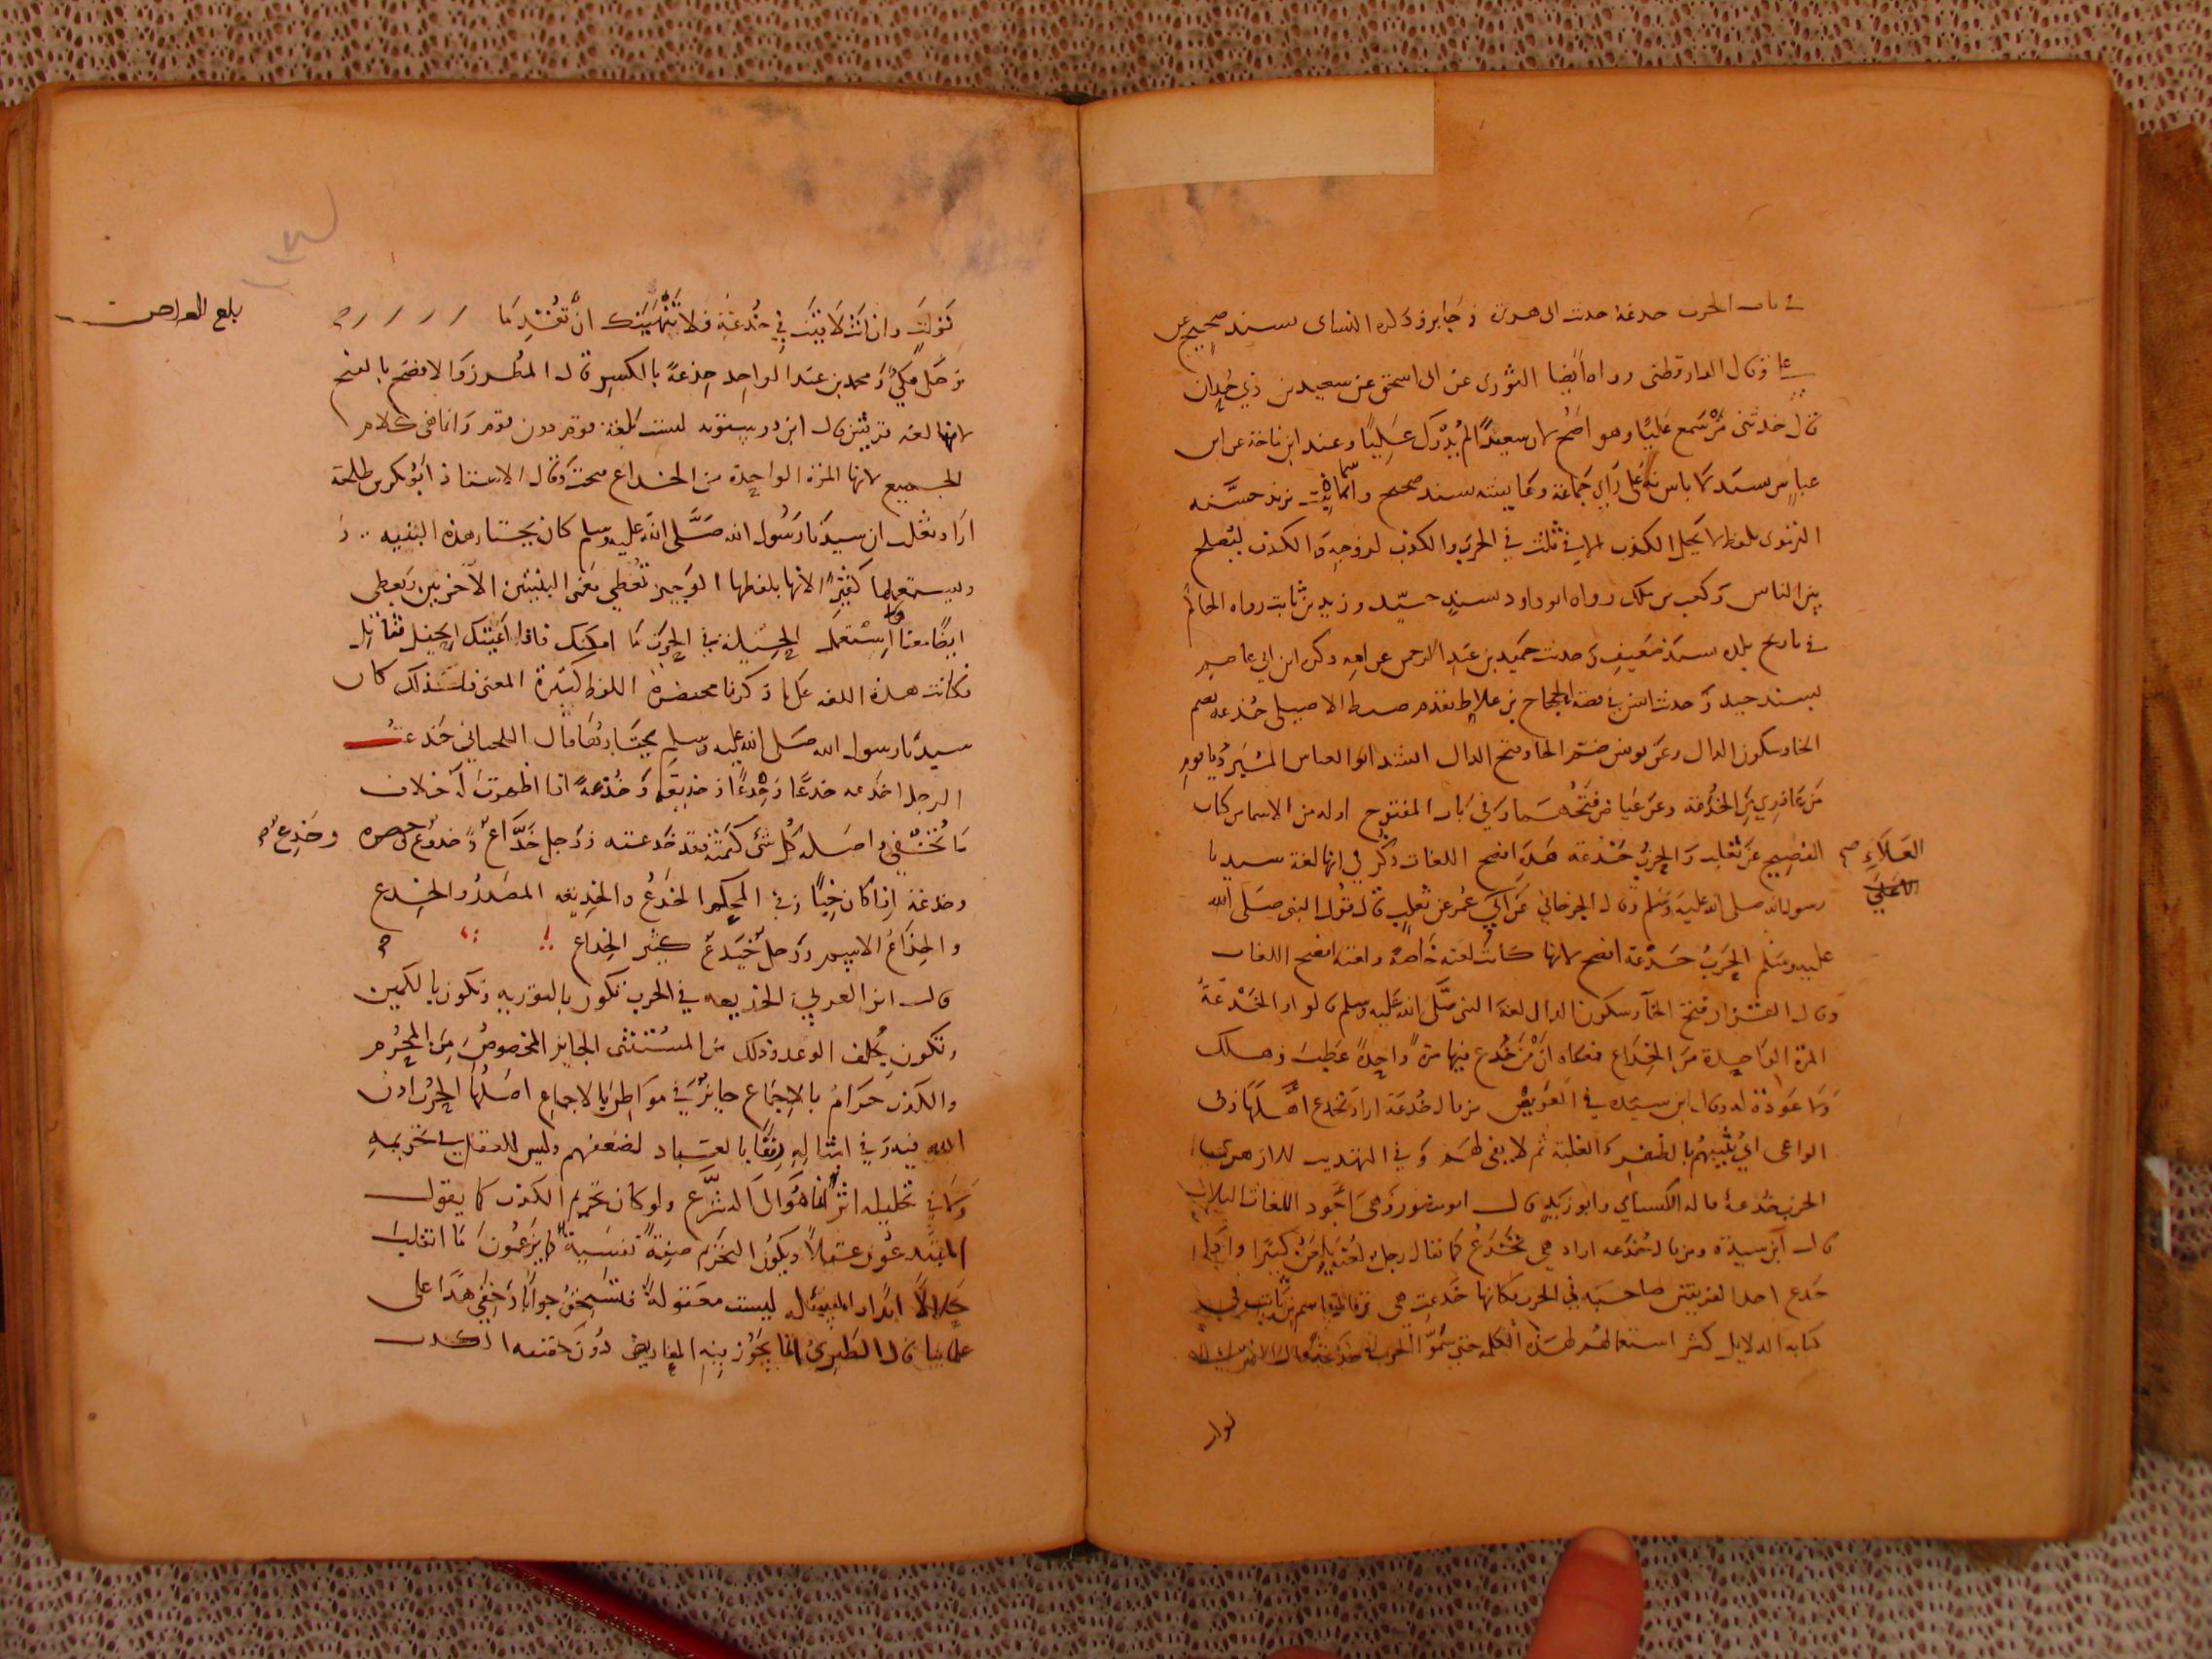 في باب الحرب خدعة حديث ابي هريرة وجابر وذكره النساي بسند صحيح عن
علي وقال الدارقطني رواه أيضا الثوري عن ابي اسحق عن سعيد بن ذي حدان
قال حدثني من سمع عليًا وهو أصح لان سعيدًا لم يدرك عليًا وعند ابن ماجة عن ابن
عباس بسند لا باس به على راي جماعة وعايشة بسند صحيح واسما بنت يزيد حسنه
الترمذي بلفظ لا يحل الكذب الا في ثلث في الحرب والكذب لزوجه والكذب ليصلح
بين الناس وكعب بن ملك رواه ابو داود بسند جيد وزيد بن ثابت رواه الحاكم
في تاريخ بلده بسند ضعيف وحديث حميد بن عبد الرحمن عن امه ذكره ابن ابي عاصم
بسند جيد وحديث انس في قصة الحجاج بن علاط تقدم ضبط الاصيلي خدعة بضم
الخا وسكون الدال وعن يونس ضم الخا وفتح الدال
من عاذري من الخدعة وعن عياض فتحهما وفي باب المفتوح اوله من الاسما من كتاب
الفصيح عن ثعلب والحرب خدعة هذه افصح اللغات ذكر لي انها لغة سيدنا
العلاء صح
رسول الله صلى الله عليه وسلم وقال الجرجاني عن ابي عمر عن ثعلب قال قول النبي صلى الله
عليه وسلم الحرب خدعة افصح لانها كانت لغته خاصة ولغته افصح اللغات
وقال القزاز فتحة الخآ وسكون الدال لغة النبي صلى الله عليه وسلم قالوا والخدعة
المرة الواحدة من الخداع فمعناه ان من خدع فيها مرة واحدة عطب وهلك
ولا عودة له وقال ابن سيده في العويص من قال خدعة اراد تخدع اهلها زاد
الواعي اي تمنيهم بالظفر والغلبة ثم لا يفي لهم وفي التهذيب للازهري
الحرب خدعة قاله الكسائي وابو زيد قال ابو منصور وهي أجود اللغات الثلاث
قال ابن سيدة ومن قال خدعه اراد هي تخدع كما يقال رجل لعنة يلعن كثيرًا واذا
خدع احد الفريقين صاحبه في الحرب فكانها خدعت هي وقال قاسم بن ثابت في
كتابه الدلايل كثر استعمالهم لهذه الكلمة حتى سموا الحرب خدعة
بلغ العراض
توليت وان انت لاقيت في خدعة فلا يتهيبنك ان تقدما
وحكى مكي ومحمد بن عبد الواحد خدعة بالكسر قال المطرز والافصح بالفتح
لانها لغة قريش قال ابن درستويه ليست بلغة قوم دون قوم وانما هي كلام
الجميع لانها المرة الواحدة من الخداع فتحت وقال الاستاذ أبو بكر بن طلحة
اراد ثعلب ان سيدنا رسول الله صلى الله عليه وسلم كان يختار هذه البنيه
ويستعملها كثيرًا لانها بلفظها الوجيز تعطي معنى البنيتين الآخريين ويعطي
ايضًا معنا استعمل الحيلة في الحرب ما امكنك فاذا أعيتك الحيل فقاتل
فكانت هذه اللغه على ما ذكرنا مختصرة اللفظ كثيرة المعنى فلذلك كان
سيدنا رسول الله صلى الله عليه وسلم يختارها قال اللحياني خدعت
الرجل اخدعه خدعًا وخدعًا وخديعة وخدعة اذا اظهرت له خلاف
ما تخفي واصله كل شي كتمته فقد خدعته ورجل خداع وخدوع وخدع
وخدعة اذا كان خبًا وفي المحكم الخدع والخديعه المصدر والخدع
والخداع الاسم ورجل خيدع كثير الخداع
قال ابن العربي الخديعه في الحرب تكون بالتوريه وتكون بالكمين
وتكون بخلف الوعد وذلك من المستثنى الجايز المخصوص من المحرم
والكذب حرام بالاجماع جايز في مواطن بالاجماع اصلها الحرب اذن
الله فيه وفي امثاله رفقًا بالعباد لضعفهم وليس للعقل في تحريمه
ولا في تحليله اثر انما هو الى الشرع ولو كان تحريم الكذب كما يقول
المبتدعون عقلًا ويكون التحريم صفة نفسية كما يزعمون ما انقلب
حلالًا ابدًا والمسألة ليست معقولة فتستحق جوابا وخفي هذا على
علماينا قال الطبري انما يجوز فيه المعاريض دون حقيقة الكذب